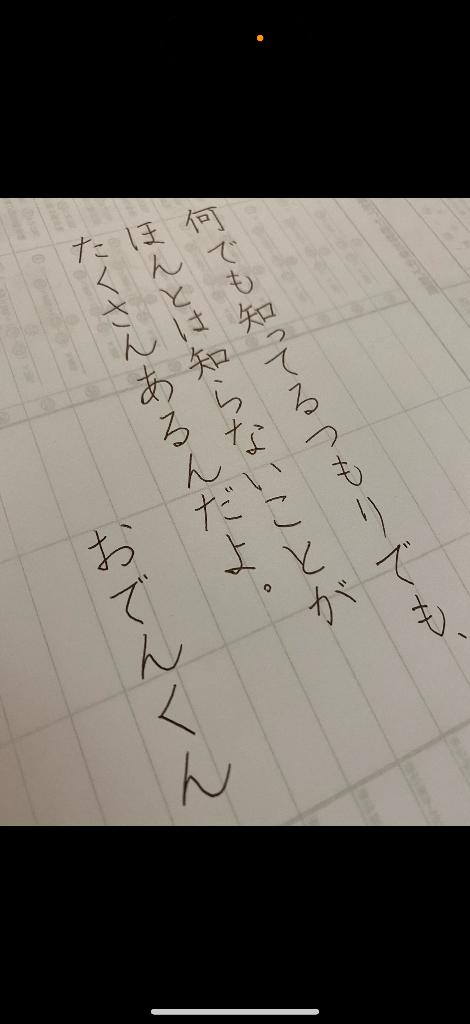 何でも知ってるつもりでも、
ほんとは知らないことが
たくさんあるんだよ。
おでんくん